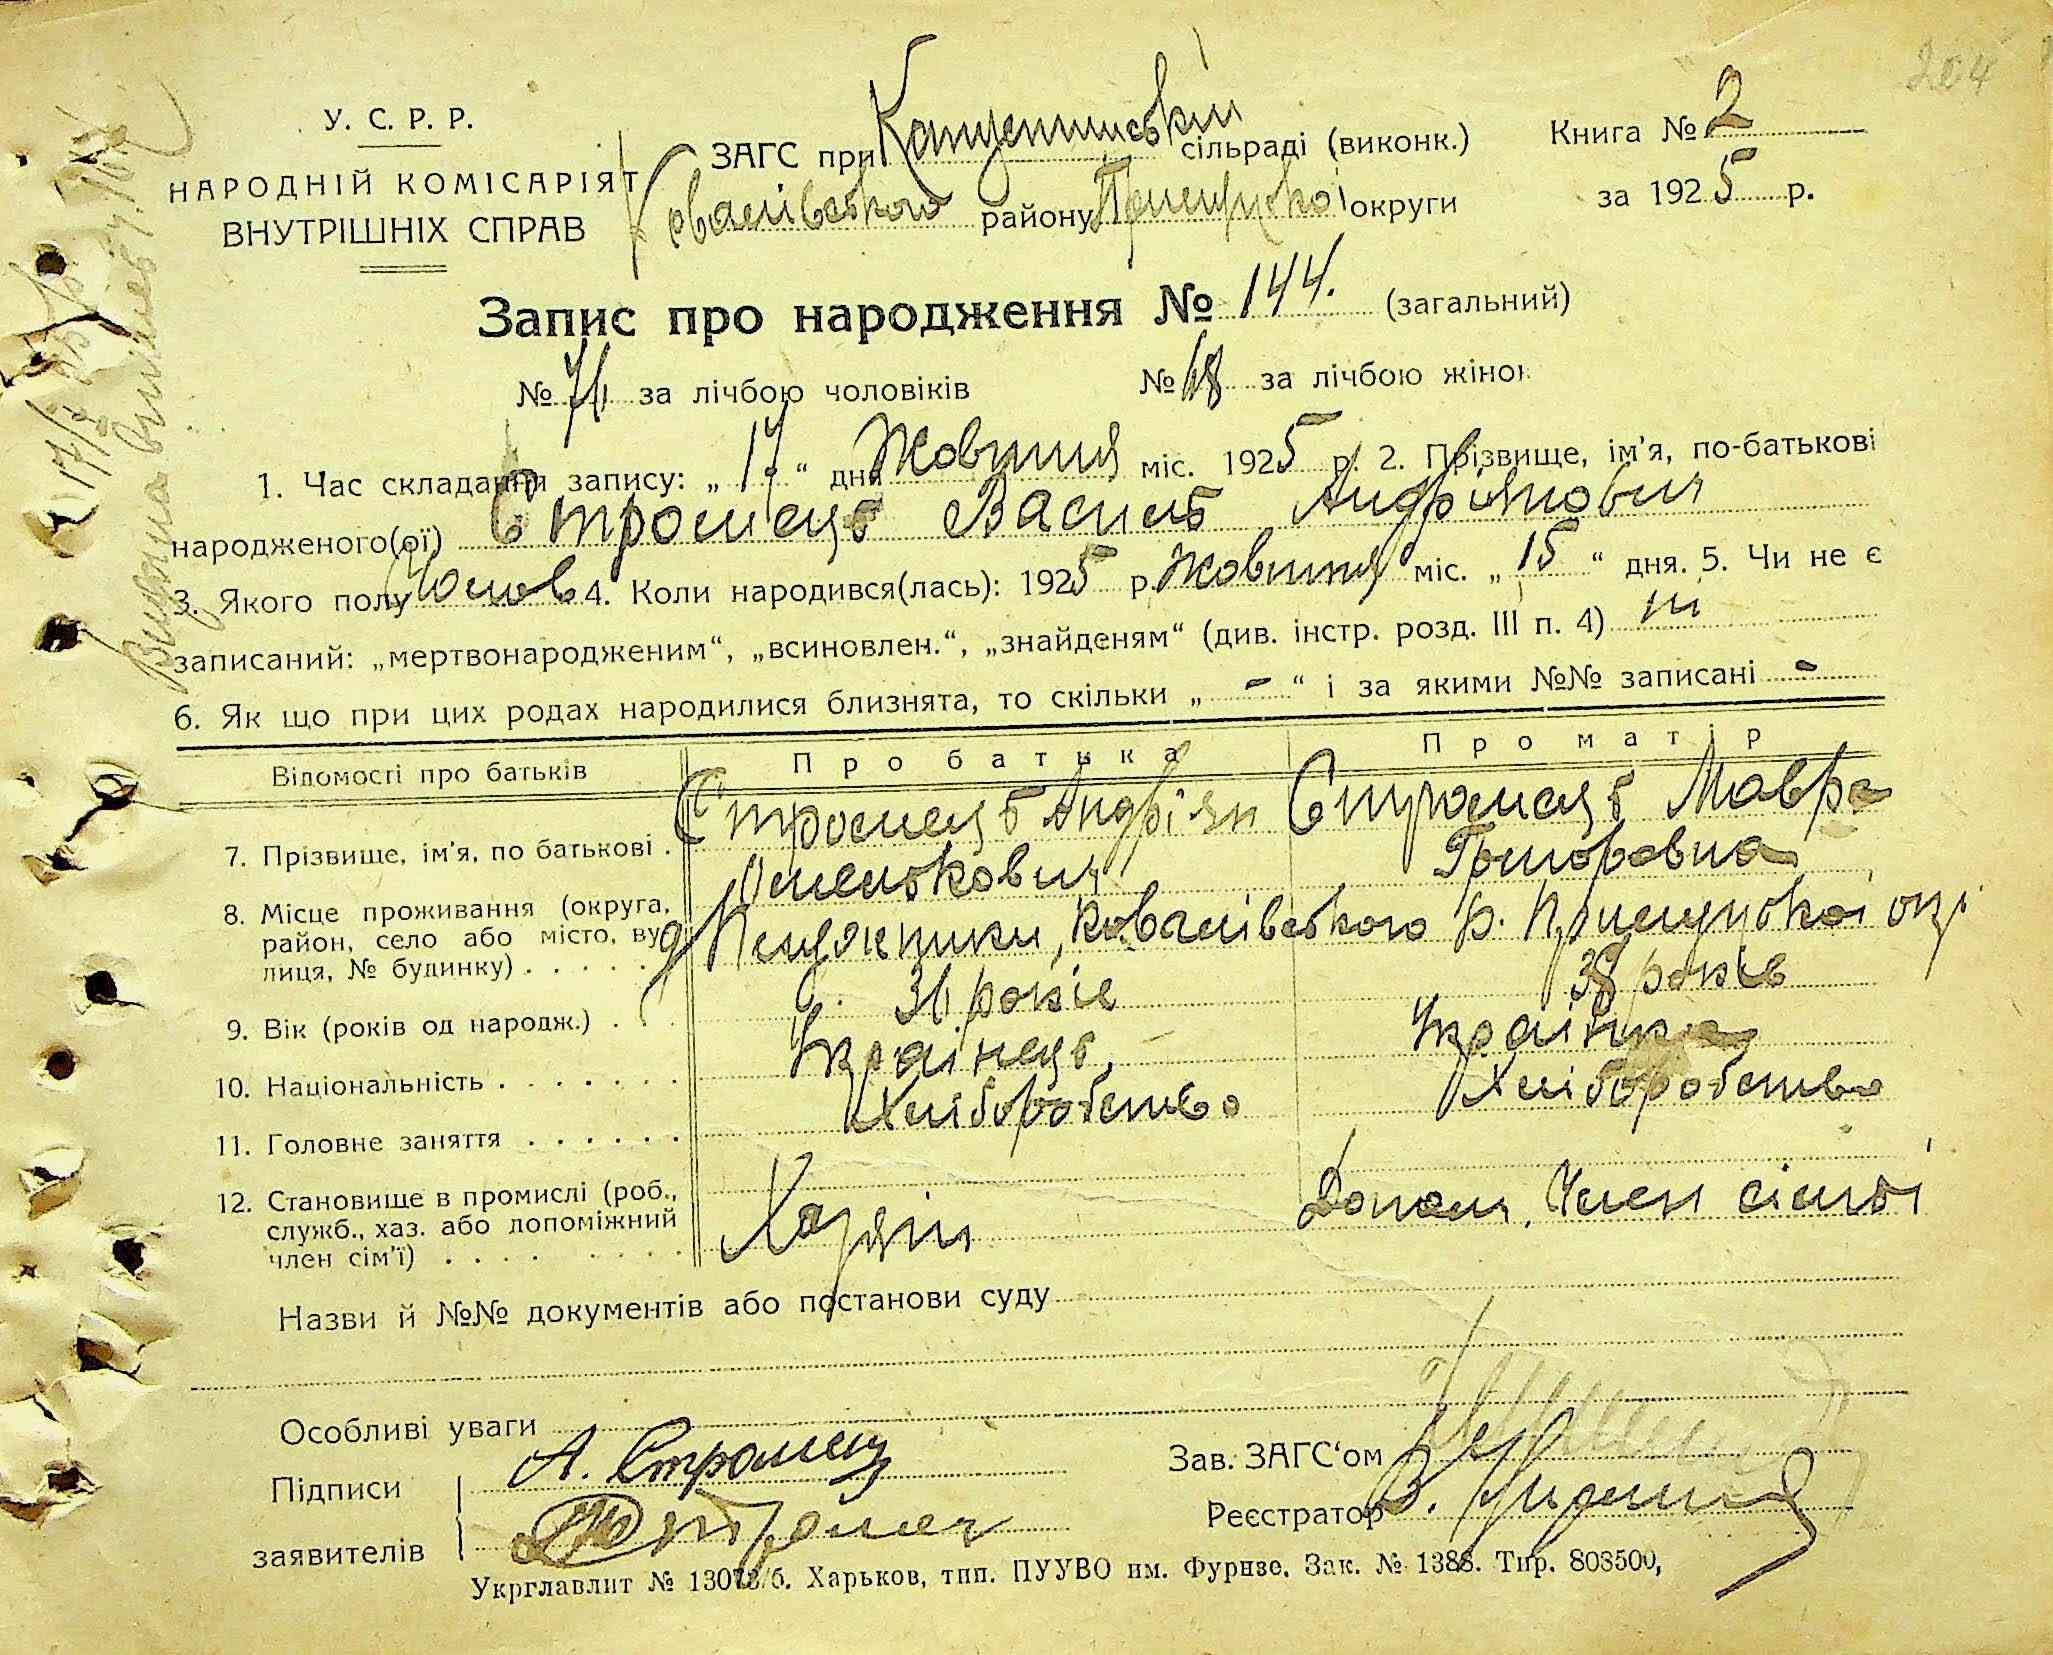 204
У. С. Р. Р.
НАРОДНІЙ КОМІСАРІЯТ
ВНУТРІШНІХ СПРАВ
ЗАГС при Капустинській сільраді (виконк.)
Ковалівського району Прилуцької округи
Книга № 2
за 1925 р.
Запис про народження № 144. (загальний)
№ 76 за лічбою чоловіків № 68 за лічбою жінок
1. Час складання запису: „ 17 “ дня Жовтня міс. 1925 р. 2. Прізвище, ім'я, по-батькові
народженого(ої) Стромець Василь Андріянович
3. Якого полу Чолов 4. Коли народився(лась): 1925 р. Жовтня міс. „ 15 “ дня. 5. Чи не є
записаний: „мертвонародженим“, „всиновлен.“, „знайденям“ (див. інстр. розд. III п. 4) ні
6. Як що при цих родах народилися близнята, то скільки „ - “ і за якими №№ записані -
Відомості про батьків Про батька Про матір
7. Прізвище, ім'я, по батькові . Стромець Андріян Омелькович Стромець Мавра Григоровна
8. Місце проживання (округа, район, село або місто, вулиця, № будинку) . . . . . Ковалівського р. Прилуцької окр
9. Вік (років од народж.) . . . 36 років 38 років
10. Національність . . . . . . . Українець Українка
11. Головне заняття . . . . . . Хліборобство Хліборобство
12. Становище в промислі (роб., служб., хаз. або допоміжний член сім'ї) . . . . . . . . . Хазяїн Допом. Член сімьї
Назви й №№ документів або постанови суду
Особливі уваги
Підписи заявителів
А. Стромец
Зав. ЗАГС'ом
Реєстратор
Укрглавлит № 13073/б. Харьков, тип. ПУУВО им. Фурнзе. Зак. № 1388. Тир. 803500,